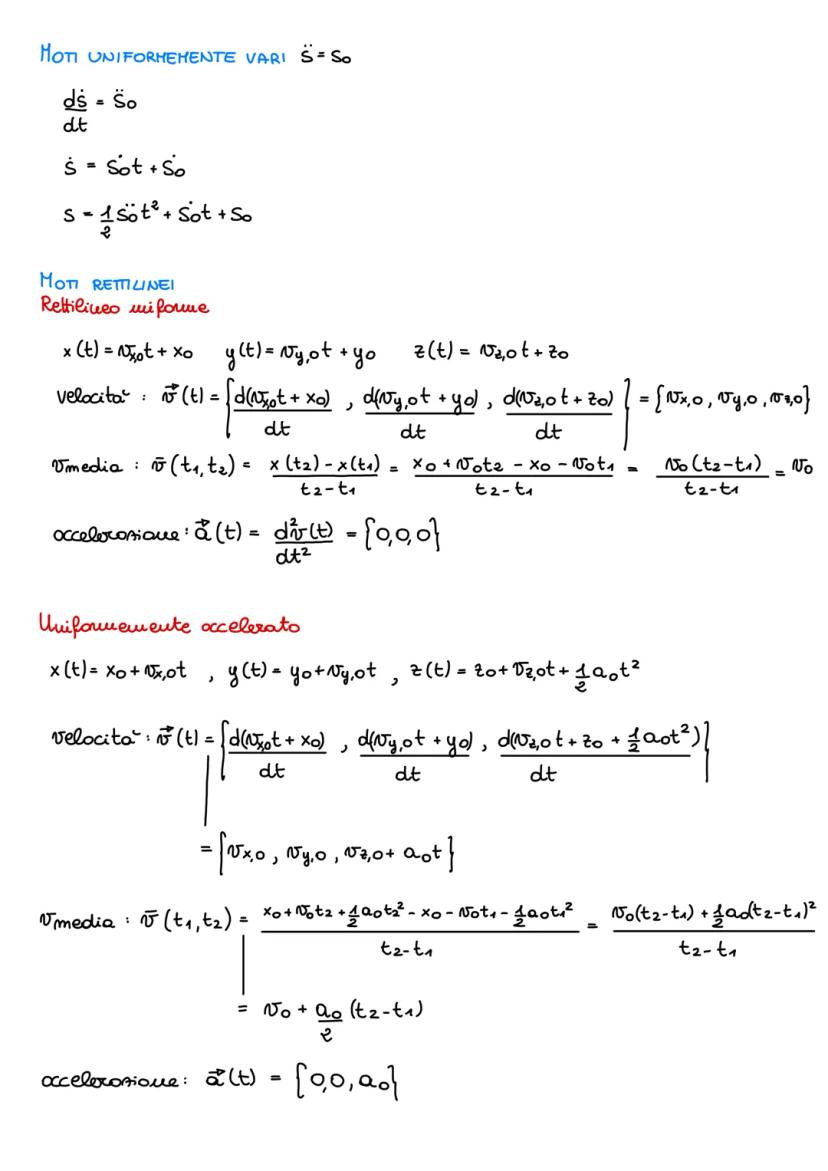 MOTI UNIFORMEMENTE VARI s̈ = s₀
ds̈/dt = s̈₀
ṡ = ṡ₀t + ṡ₀
s = 1/2 s̈₀t² + ṡ₀t + s₀
MOTI RETTILINEI
Rettilineo uniforme
x(t) = v_x,0 t + x₀   y(t) = v_y,0 t + y₀   z(t) = v_z,0 t + z₀
velocità : v⃗(t) = { d(v_x,0 t + x₀)/dt , d(v_y,0 t + y₀)/dt , d(v_z,0 t + z₀)/dt } = {v_x,0 , v_y,0 , v_z,0}
Vmedia : v̄(t₁,t₂) = (x(t₂) - x(t₁))/(t₂-t₁) = (x₀ + v₀t₂ - x₀ - v₀t₁)/(t₂-t₁) = v₀(t₂-t₁)/(t₂-t₁) = v₀
accelerazione : a⃗(t) = d²v(t)/dt² = {0,0,0}
Uniformemente accelerato
x(t) = x₀ + v_x,0 t , y(t) = y₀ + v_y,0 t , z(t) = z₀ + v_z,0 t + 1/2 a₀t²
velocità : v⃗(t) = { d(v_x,0 t + x₀)/dt , d(v_y,0 t + y₀)/dt , d(v_z,0 t + z₀ + 1/2 a₀t²)/dt }
= {v_x,0 , v_y,0 , v_z,0 + a₀t}
Vmedia : v̄(t₁,t₂) = (x₀ + v₀t₂ + 1/2 a₀t₂² - x₀ - v₀t₁ - 1/2 a₀t₁²)/(t₂-t₁) = (v₀(t₂-t₁) + 1/2 a₀(t₂-t₁)²)/(t₂-t₁)
= v₀ + a₀/2 (t₂-t₁)
accelerazione : a⃗(t) = {0,0,a₀}